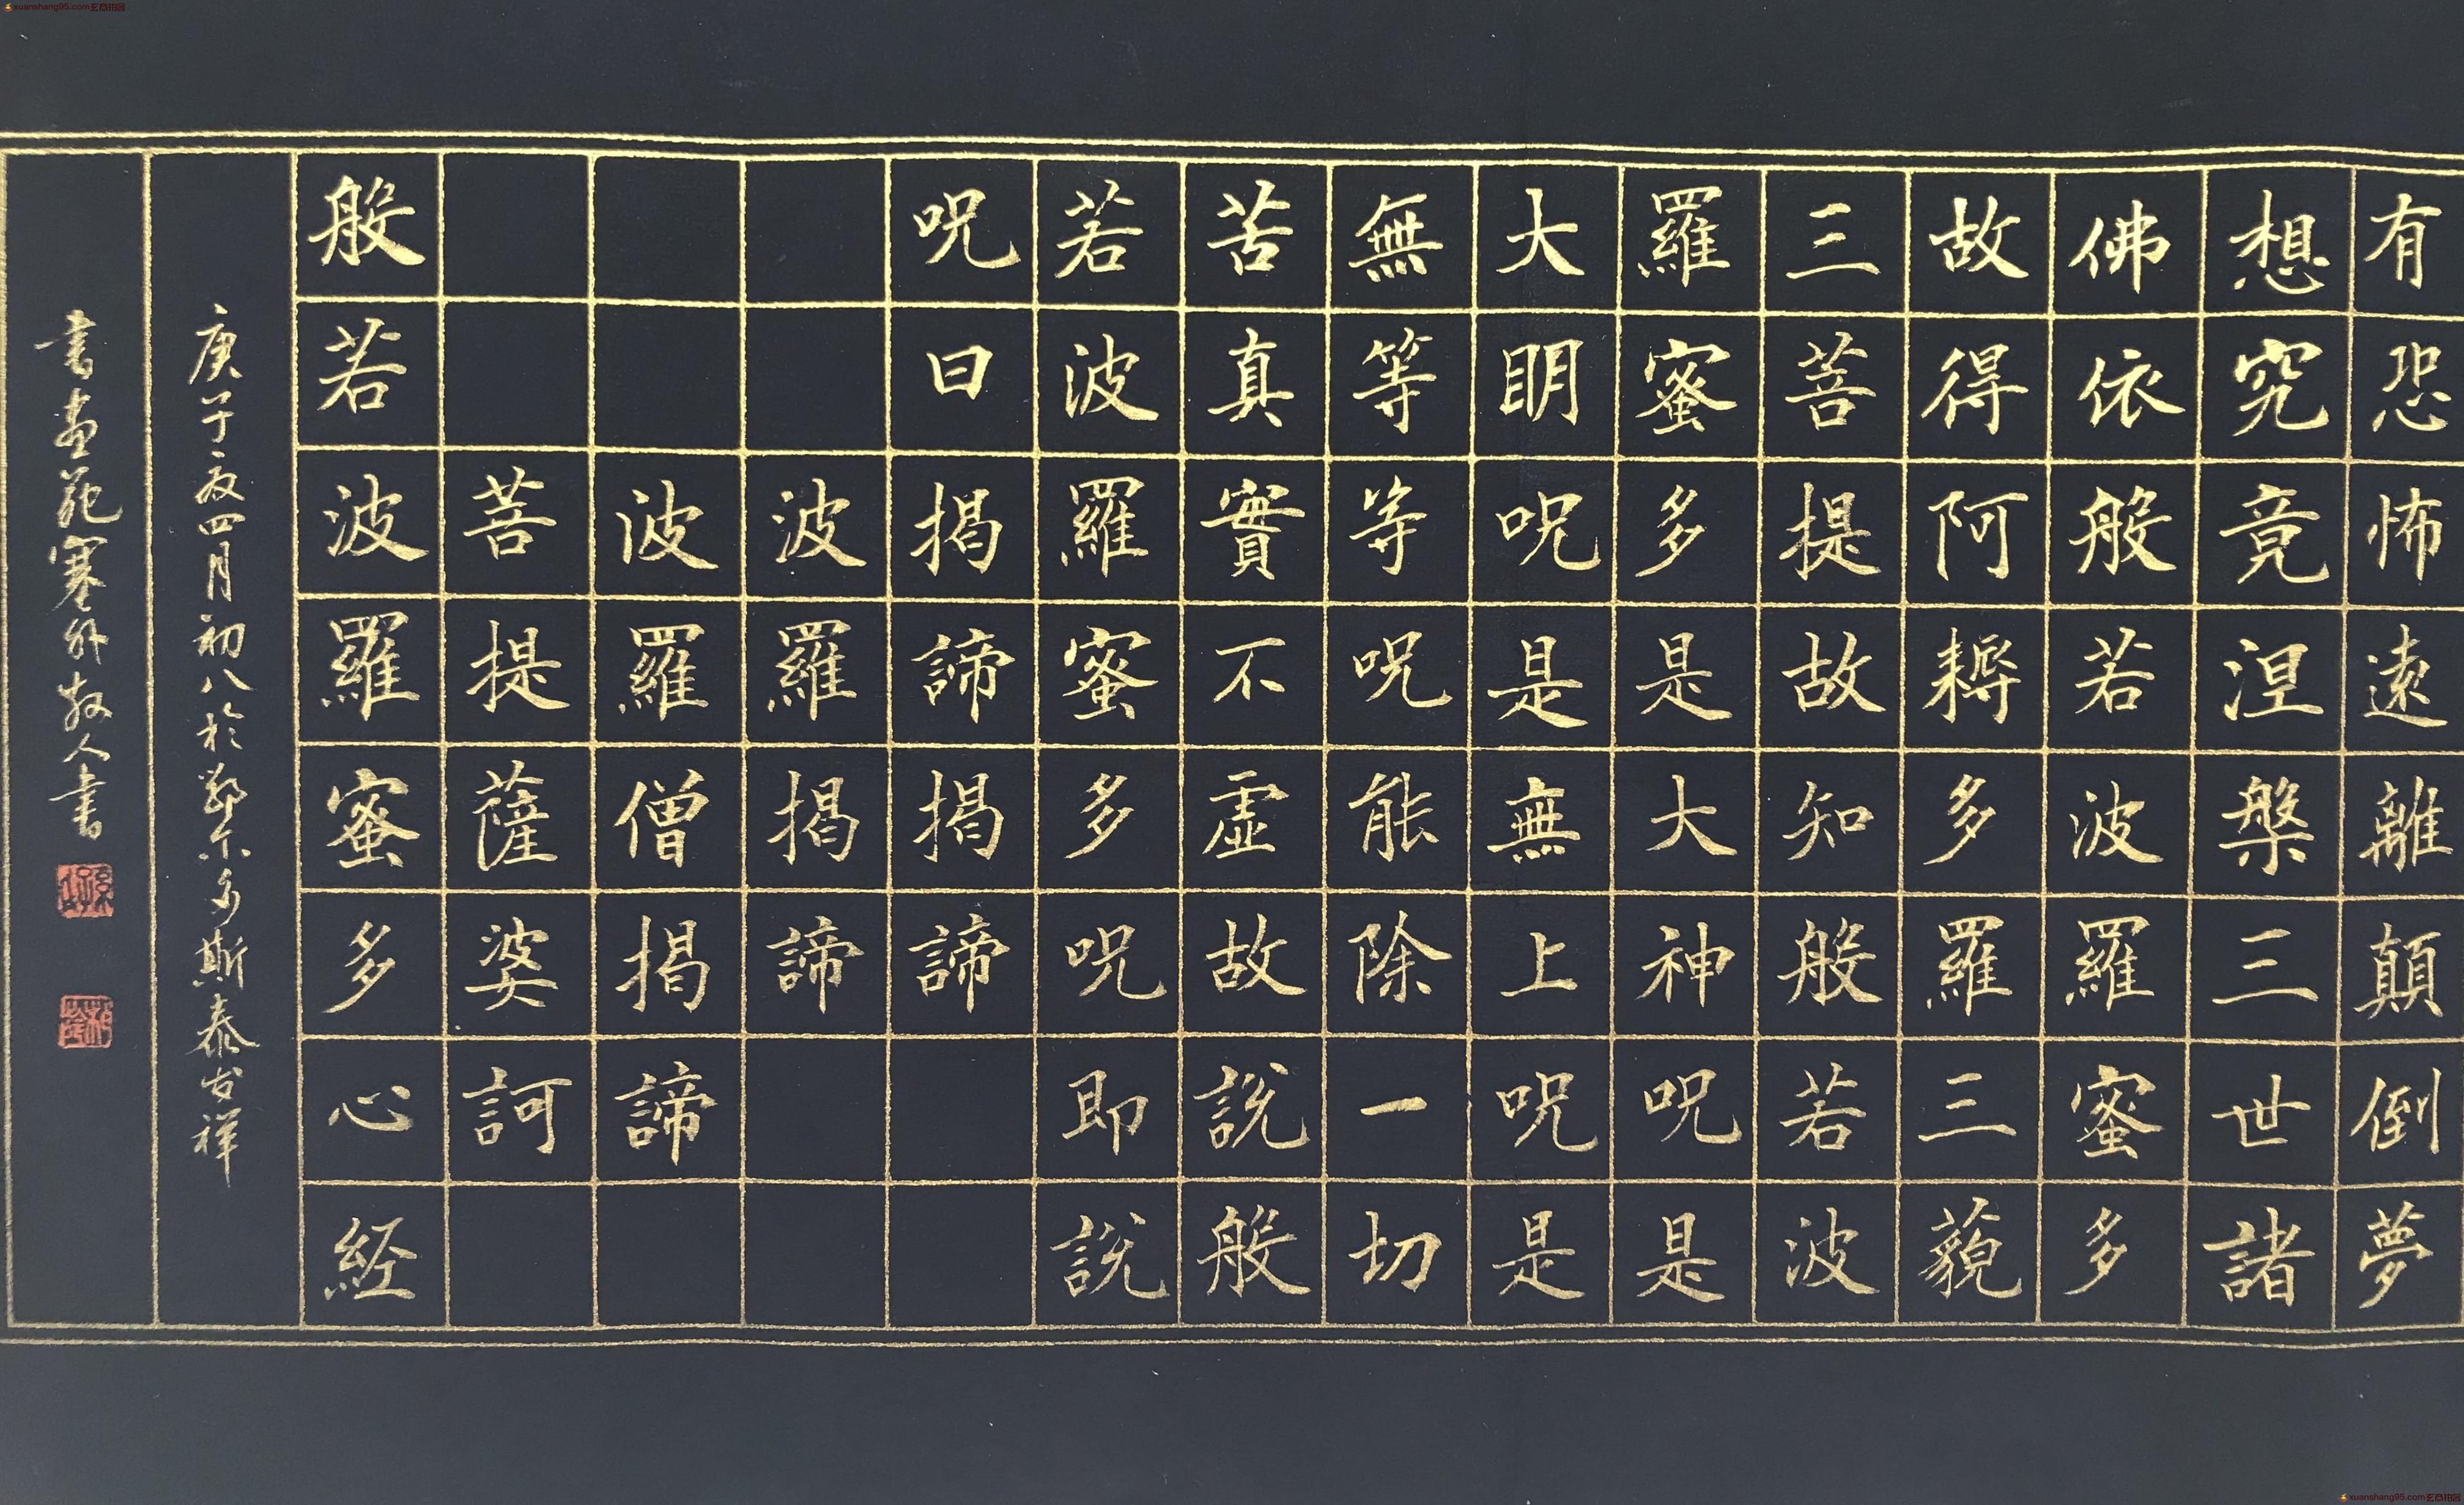 有恐怖遠離顛倒夢
想究竟涅槃三世諸
佛依般若波羅蜜多
故得阿耨多羅三藐
三菩提故知般若波
羅蜜多是大神呪是
大明呪是無上呪是
無等等呪能除一切
苦真實不虛故說般
若波羅蜜多呪即說
呪曰揭諦揭諦
波羅揭諦
波羅僧揭諦
菩提薩婆訶
般若波羅蜜多心経
庚子年四月初八於鄂尔多斯泰发祥
書畫苑寒外散人書
xuanshang95.com玄商拍品
xuanshang95.com玄商拍品